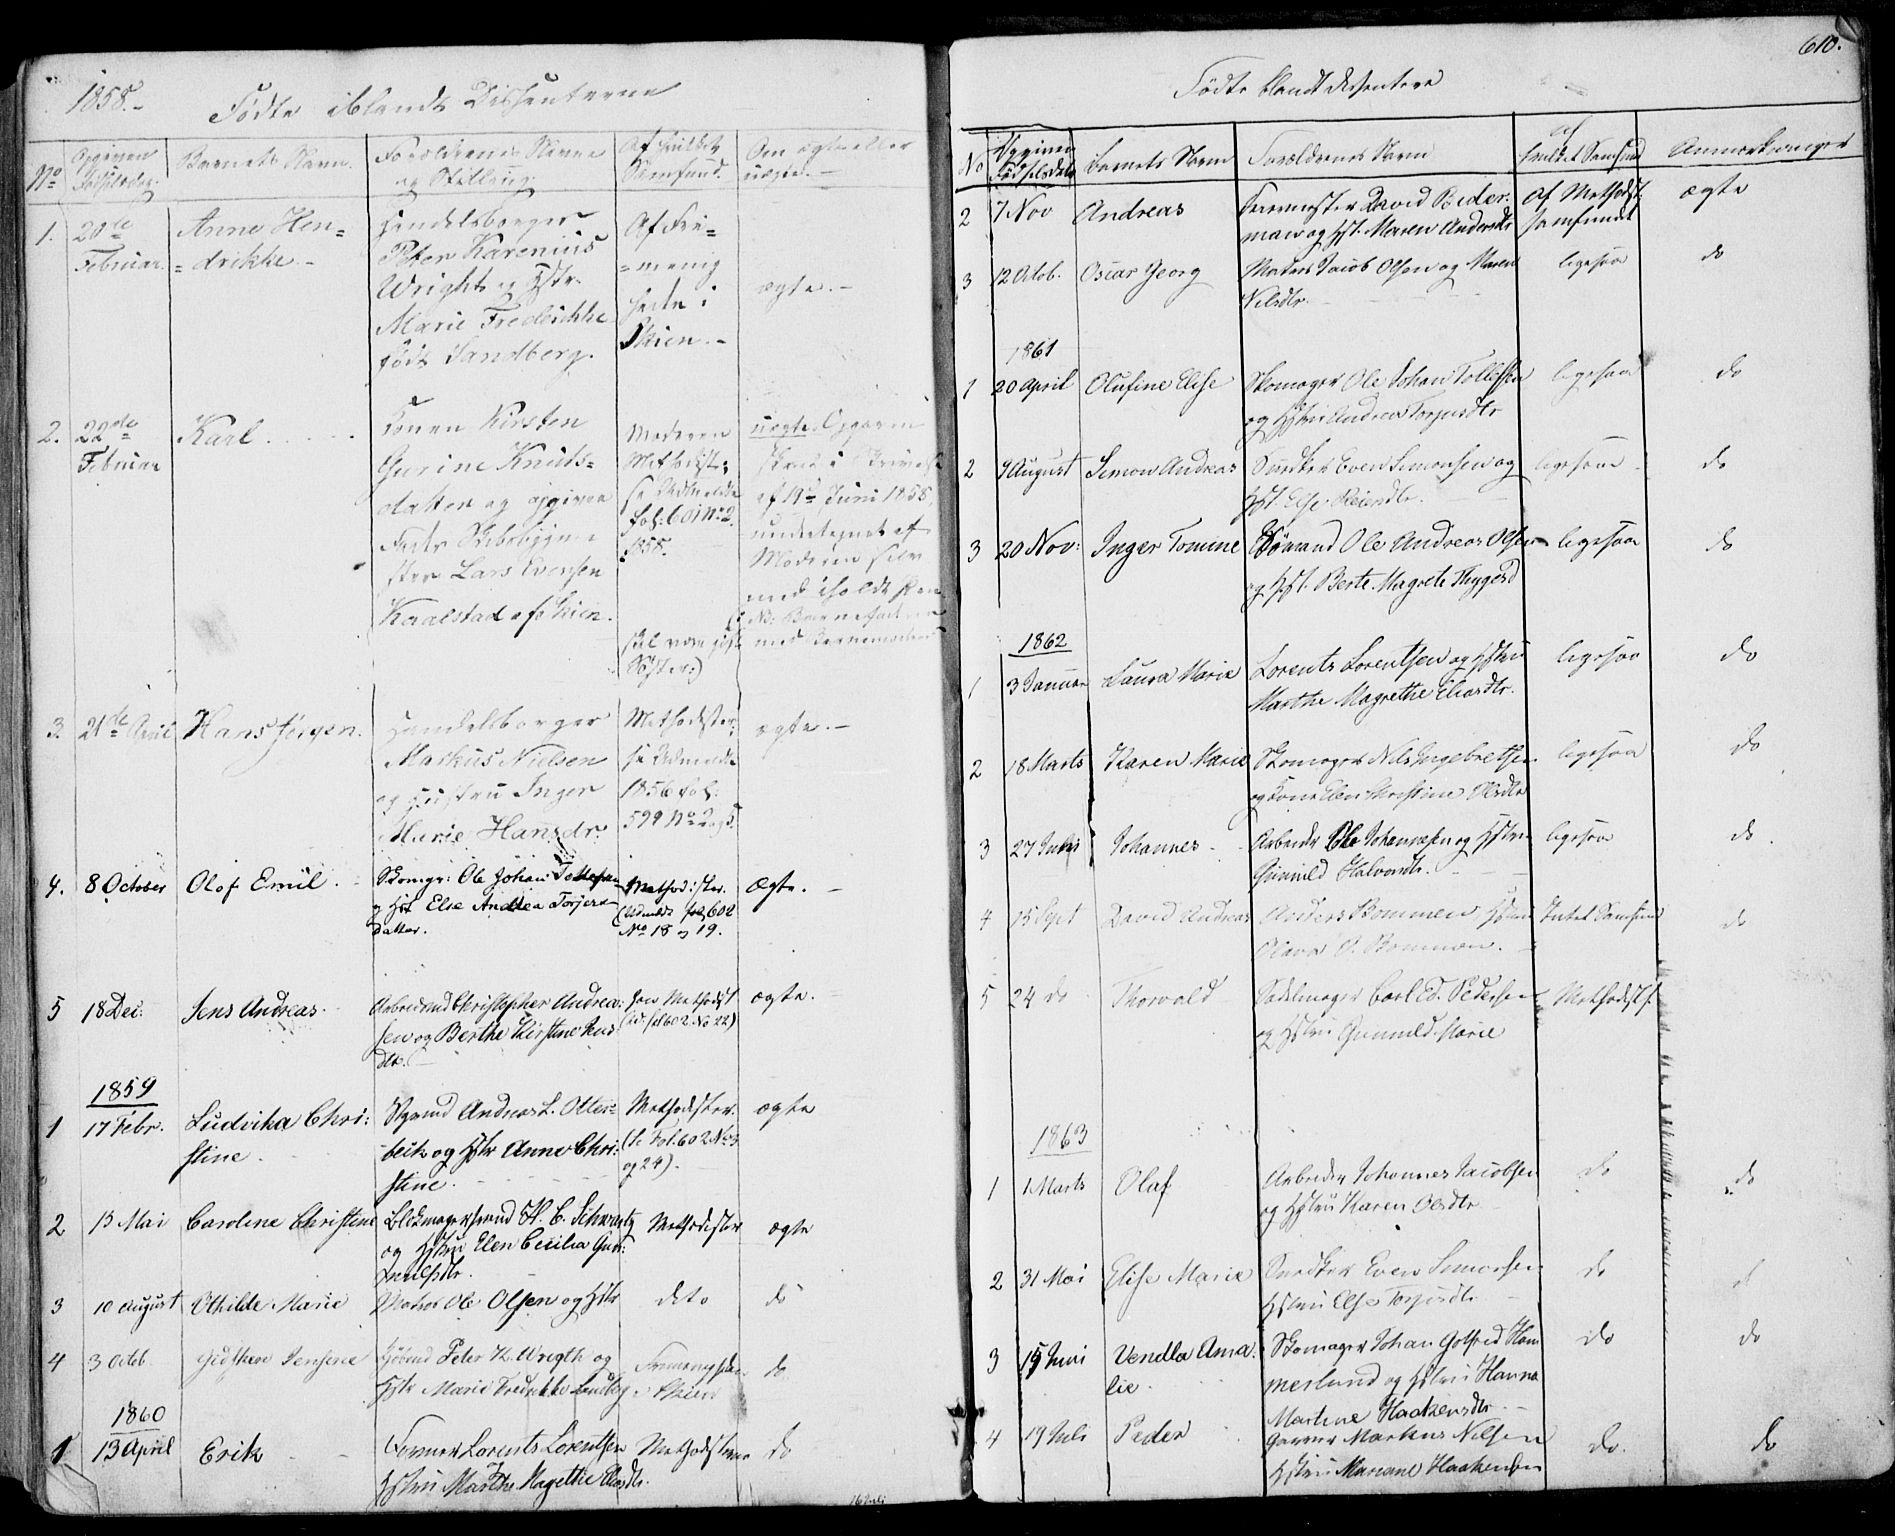 1858.-
Fødte iblandt Dissenterne
No
Opgiven
Fødselsdag.
Barnets Navn.
Forældrenes Navne
og Stilling.
Af hvilket
Samfund.
Om ægte eller
uægte.-
1.
20de
Februar.
Anne Hen=
=drikke.-
Handelsborger
Peter Karenius
Wright og Hstr.
Marie Fredrikke
født Sandberg.
Af Fri=
=menig
heden i
Skien.-
ægte.-
2.
22de
Februar
Karl
Konen Kirsten
Gurine Knuts=
datter og opgiven
Fader Skibsbygme
ster Lars Evensen
Kaalstad af Skien.
Moderen
Methodist,
se Udmeldte
fol: 601 No 2.
1858.
uægte. Opgaven
skeet i Skrivelse
af 19de Juni 1858,
undertegnet af
Moderen selv
3.
21de April
Hans Jörgen.
Handelsborger
Markus Nielsen
og Hustru Inger
Marie Hansdr.
Methodister,
se Udmeldte
1856 fol:
599 No 2 og 5.
ægte.-
4.
8 October
Olof Emil.
Skomgr: Ole Johan Tollefsen
og Hst Else Andrea Torjers
datter.
Methodister.
(Udmeldt fol 602
No 18 og 19.
Ægte.-
5
18 Dec:
Jens Andreas.
Arbeidsmd Christopher Andrea:
sen og Berthe Kirstine Jens
dtr.
(ud fol 602 No 22)
ægte.-
1859
1
17 Febr.
Ludvika Chri:
stine.
Andreas L. Otter=
beck og Hstr Anne Chri:
stine.
Methodister.
(se Fol. 602 No 23
og 24).
ægte
2
13 Mai
Caroline Christine
Blokmagersvend H. C. Schwartz
og Hstru Elen Cecilia Gun:
Methodister
ægte
3
10 August
Othilde Marie
Matros Ole Olsen og Hstr
deto
do
4
3 Octob.
Gidsken Jensine
Peter K. Wrigth og
Hstr Marie Fredrikke Sandbg
Frimenigheden
i Skien
do
1860
1
13 April
Erik
Farver Lorents Lorentsen
Hstru Marthe Magrethe Eliasdtr.
Methodisterne
do
16 Juli
610.
Fødte blandt dissentere
No
Opgiven
Fødselsdato
Barnets Navn
Forældrenes Navn
af
hvilket Samfund
Anmærkninger
2
7 Nov
Andreas
Farvemester David Beder:
man og Hst. Maren Andersdtr
Af Methodist
samfundet
ægte
3
12 Octob.
Oscar Georg
Matros Jacob Olsen og Maren
Nilsdtr.
ligesaa
do
1861
1
20 April
Olufine Elise
Skomager Ole Johan Tollefsen
og Hstru Andrea Torjersdtr
ligesaa
do
2
9 August
Simon Andreas
Snedker Even Simonsen og
Hst. Else
ligesaa
do
3
20 Nov:
Inger Tomine
Sømand Ole Andreas Olsen
og Hst. Berte Magrete Thygesd
ligesaa
do
1862
1
3 Januar
Laura Marie
Lorents Lorentsen og Hstru
Marthe Magrethe Eliasdtr.
ligesaa
do
2
18 Marts
Karen Marie
Skomager Nils Ingebretsen
og Kone Elen Kirstine Olsdtr
ligesaa
do
3
27 Juli
Johannes
Arbeider Ole Johannesen og Hstru
Gunnild Halvorsdtr.
ligesaa
do
4
15 Sept
David Andreas
Anders Bommen Hstru
Olava O. Bommen.
Intet Samfund
do
5
24 do
Thorvald
Sadelmager Carl Ed. Pedersen
og Hstru Gunnild Marie
Methodistsf.
1863
1
1 Marts
Olaf
Arbeider Johannes Jacobsen
og Hstru Karen Olsdtr
do
do
2
31 Mai
Elise Marie
Snedker Even Simonsen
Hstru Else Torjersdtr
do
d
3
15 Juni
Vendla Ama:
lie.
Skomager Johan Gotfred Ham
merlund og Hstru Hanna
Martine Haakensdtr
do
do
4
19 Juli
Peder
Garver Markus Nilsen
Hstru Mariane Haakensen
do.
do